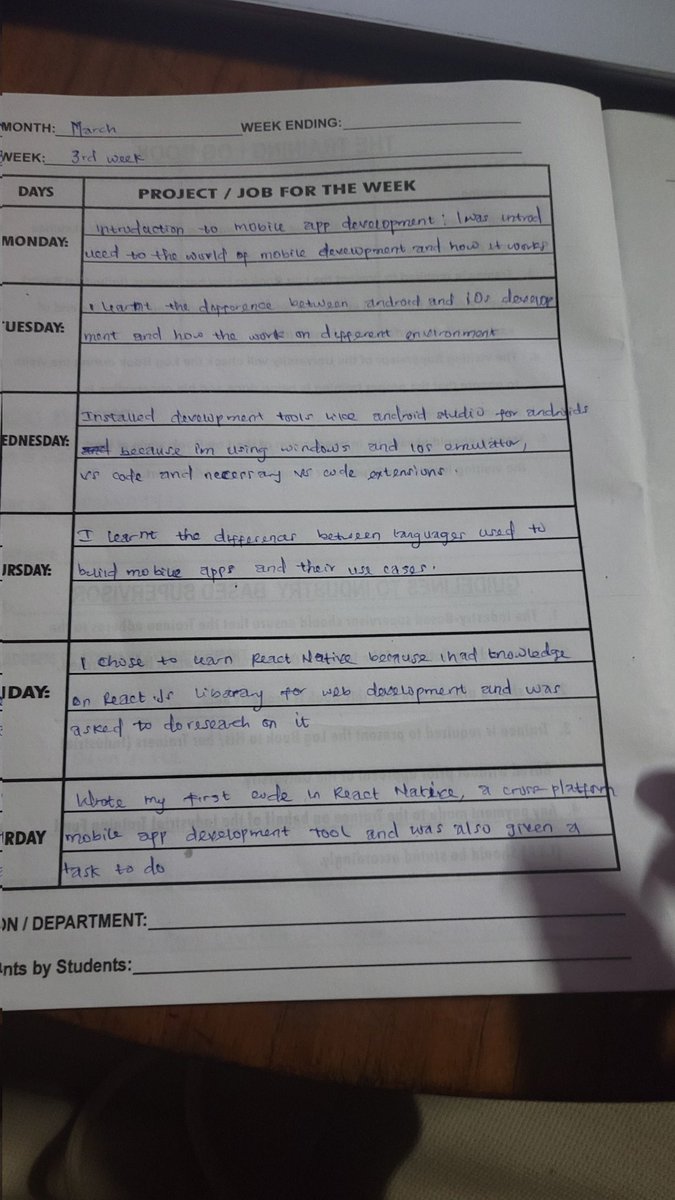 MONTH: March WEEK ENDING:
WEEK: 3rd week
DAYS PROJECT / JOB FOR THE WEEK
MONDAY: Introduction to mobile app development: I was introd
uced to the world of mobile development and how it works
TUESDAY: I learnt the difference between android and iOs develop
ment and how the work on different environment
EDNESDAY: Installed development tools like android studio for androids
and because im using windows and ios emulator,
vs code and necessary vs code extensions.
URSDAY: I learnt the differences between languages used to
build mobile apps and their use cases.
IDAY: I chose to learn React Native because I had knowledge
on React.Js libarary for web development and was
asked to do reseach on it
RDAY Wrote my first code in React Native, a cross-platform
mobile app development tool and was also given a
task to do
ON / DEPARTMENT:
nts by Students: